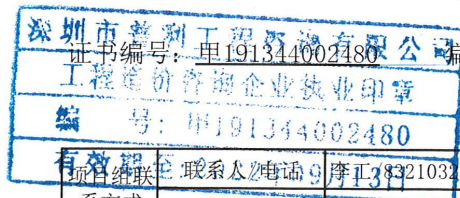 深圳市普利工程咨询有限公司
证书编号：甲191344002480
工程造价咨询企业执业印章
编 号：甲191344002480
有效期至：2022年09月13日
项目组联 联系人/电话 李工/8321032
系方式